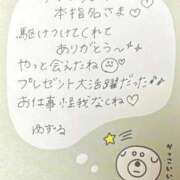 本指名さま♡
駆けつけてくれて
ありがとう〜♪♪
やっと会えたね☺♡
プレゼント大活躍だった♪♪
お仕事怪我なくね♡
ゆずる